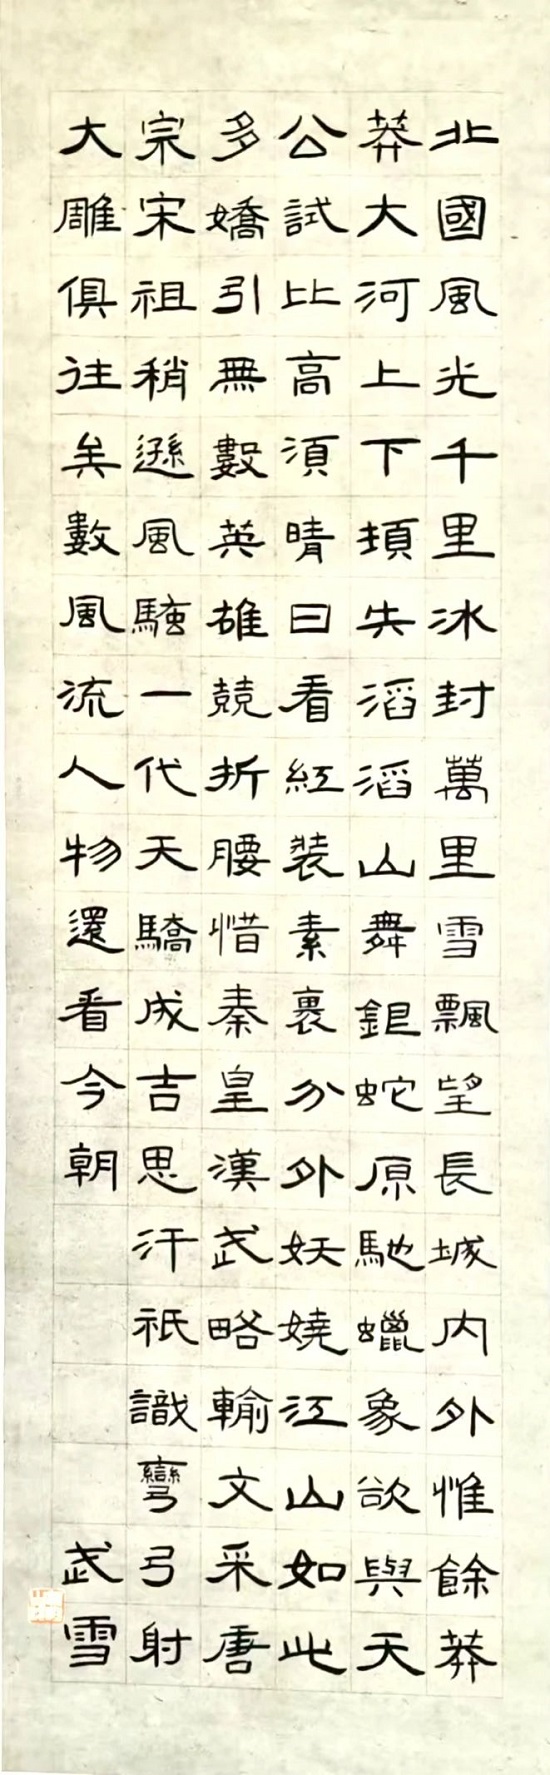 北國風光千里冰封萬里雪飄望長城內外惟餘莽
莽大河上下頓失滔滔山舞銀蛇原馳蠟象欲與天
公試比高須晴日看紅裝素裹分外妖嬈江山如此
多嬌引無數英雄競折腰惜秦皇漢武略輸文采唐
宗宋祖稍遜風騷一代天驕成吉思汗祇識彎弓射
大雕俱往矣數風流人物還看今朝
武雪